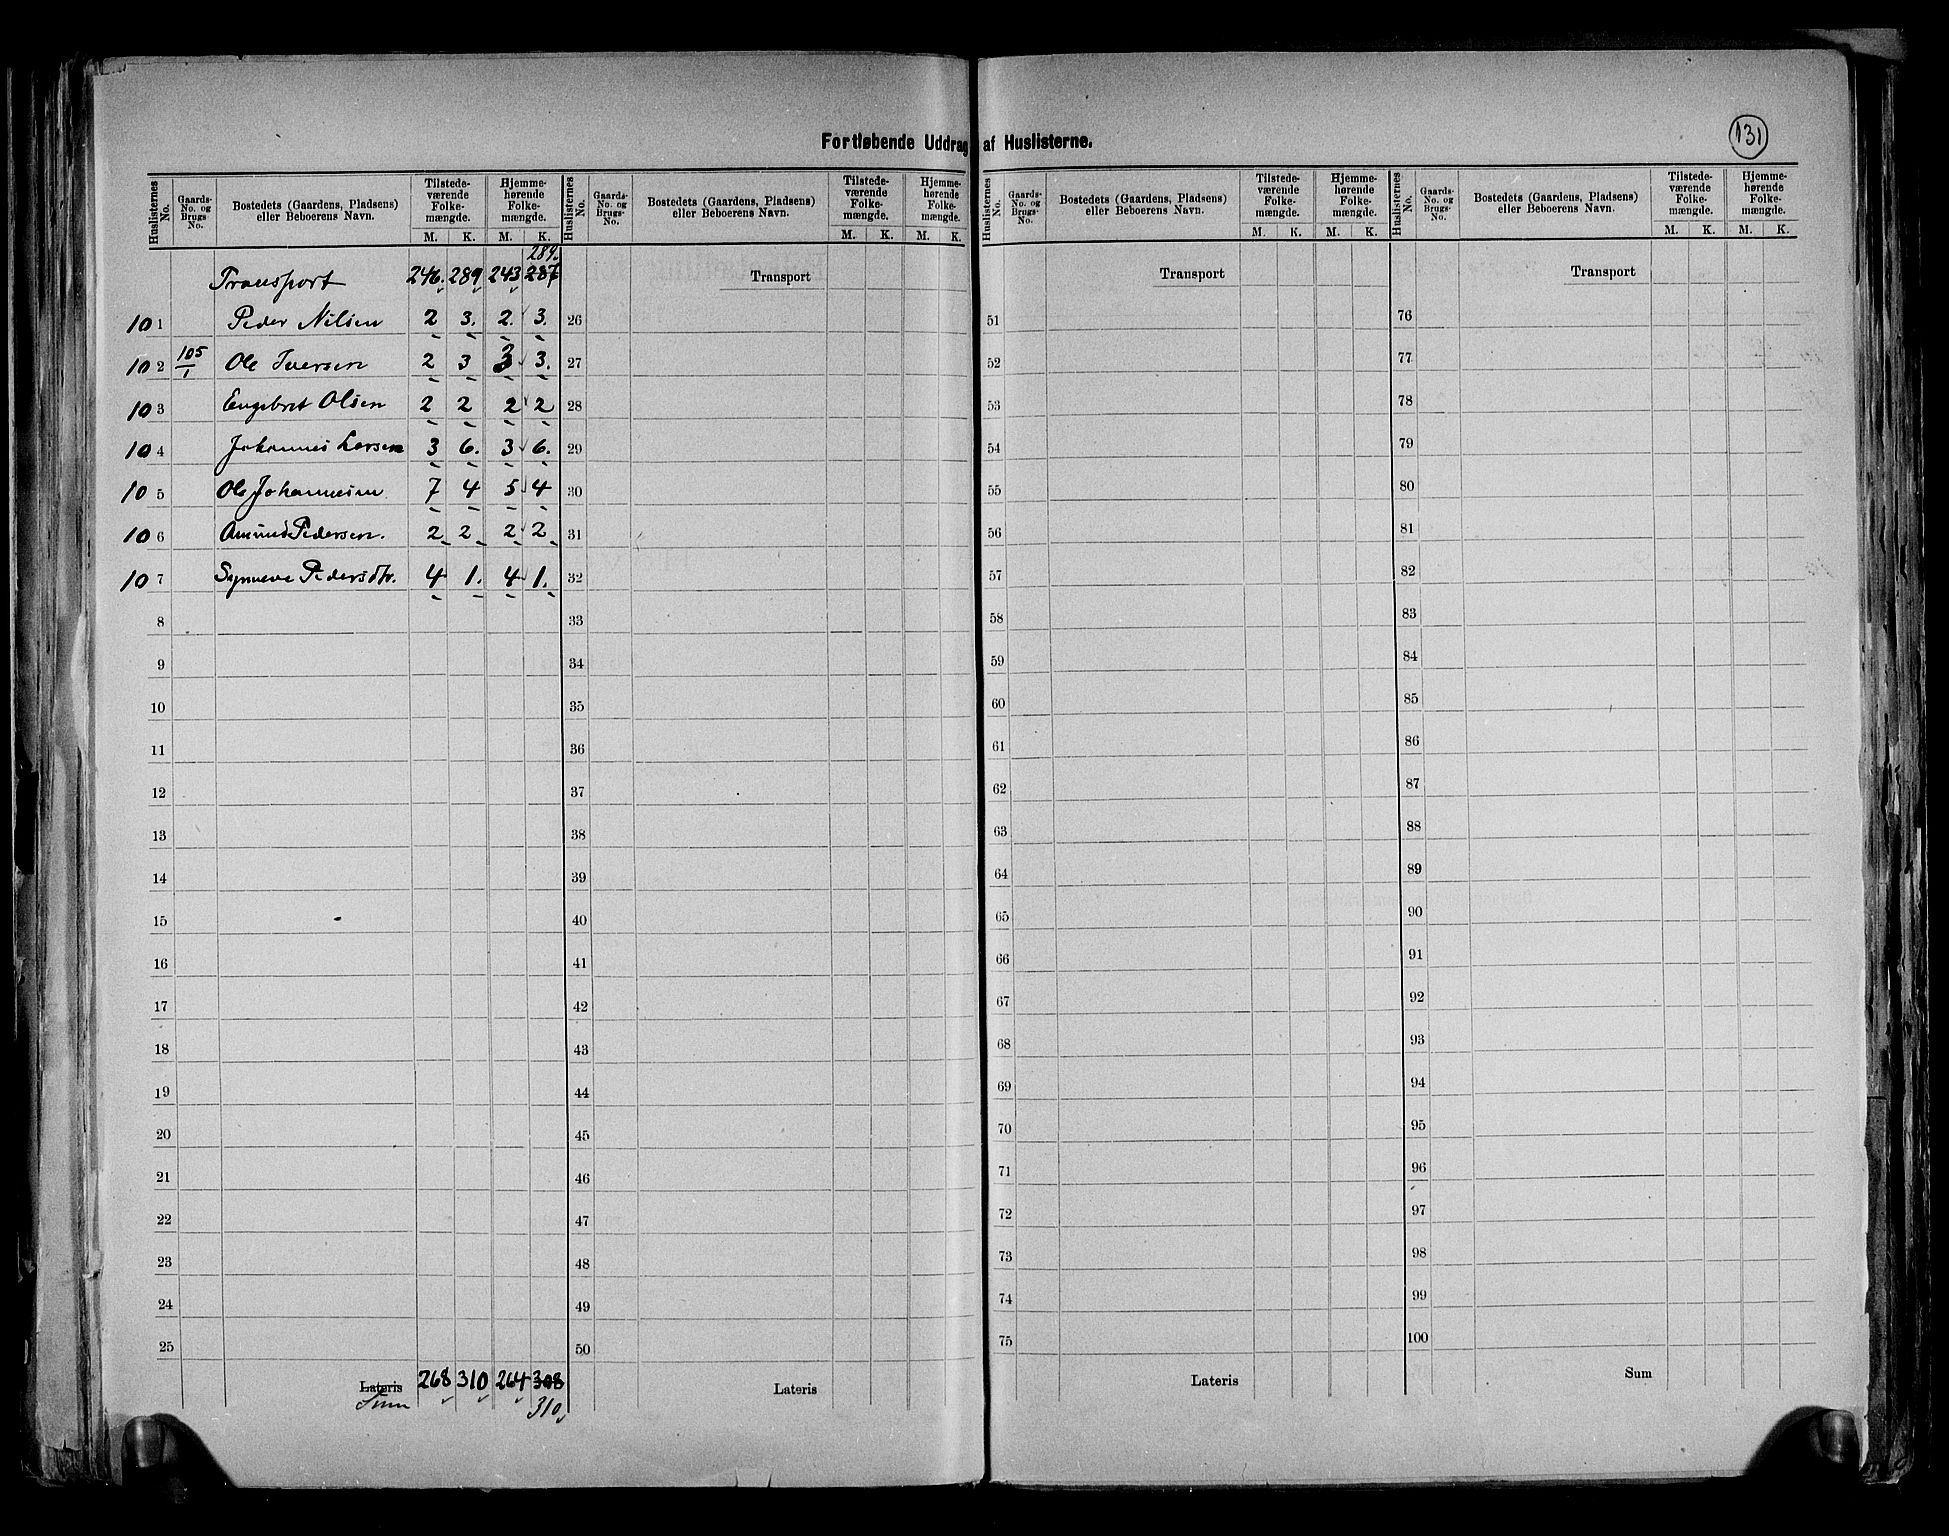 Fortløbende Uddrag af Huslisterne.
131
Huslisternes No. Gaards-No. og Brugs-No. Bostedets (Gaardens, Pladsens) eller Beboerens Navn. Tilstedeværende Folkemængde. M. K. Hjemmehørende Folkemængde. M. K.
Huslisternes No. Gaards-No. og Brugs-No. Bostedets (Gaardens, Pladsens) eller Beboerens Navn. Tilstede-værende Folke-mængde. M. K. Hjemme-hørende Folke-mængde. M. K.
Huslisternes No. Gaards-No. og Brugs-No. Bostedets (Gaardens, Pladsens) eller Beboerens Navn. Tilstede-værende Folke-mængde. M. K. Hjemme-hørende Folke-mængde. M. K.
Huslisternes No. Gaards-No. og Brugs-No. Bostedets (Gaardens, Pladsens) eller Beboerens Navn. Tilstede-værende Folke-mængde. M. K. Hjemme-hørende Folke-mængde. M. K.
289.
Transport 246. 289 243 287
101 Peder Nilsen 2 3. 2. 3.
102 105/1 Ole Iversen 2 3 3 3.
103 Engebret Olsen 2 2 2 2
104 Johannes Larsen 3 6. 3 6.
105 Ole Johannesen 7 4 5 4
106 Amund Pedersen. 2 2 2 2
107 Synneve Pedersdtr. 4 1. 4 1.
8
9
10
11
12
13
14
15
16
17
18
19
20
21
22
23
24
25
Lateris 268 310 264 308
Sum 310
Transport
26
27
28
29
30
31
32
33
34
35
36
37
38
39
40
41
42
43
44
45
46
47
48
49
50
Lateris
Transport
51
52
53
54
55
56
57
58
59
60
61
62
63
64
65
66
67
68
69
70
71
72
73
74
75
Lateris
Transport
76
77
78
79
80
81
82
83
84
85
86
87
88
89
90
91
92
93
94
95
96
97
98
99
100
Sum